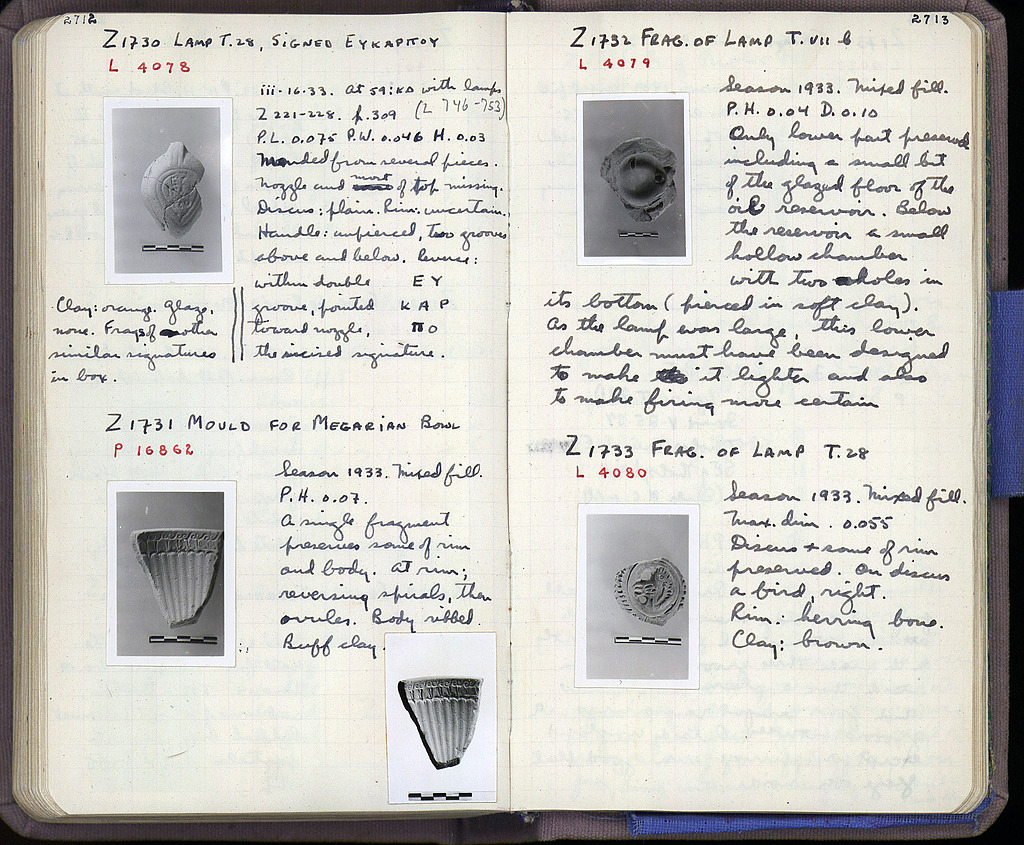 2712
Z1730 LAMP T.28, SIGNED EYKAPΠOY
L 4078
iii-16-33. At 59:ΚΔ with lamps
Z 221-228. p.309 (L 746-753)
P.L. 0.075 P.W. 0.046 H. 0.03
Mended from several pieces.
Nozzle and most of top missing.
Discus: plain. Rim: uncertain.
Handle: unpierced, two grooves
above and below. Reverse:
within double EY
groove, pointed ΚΑΡ
toward nozzle, ΠΟ
the incised signature.
Clay: orange. Glaze,
none. Frags of other
similar signatures
in box.
Z1731 MOULD FOR MEGARIAN BOWL
P 16862
Season 1933. Mixed fill.
P.H. 0.07.
A single fragment
preserves some of rim
and body. At rim;
reversing spirals, then
ovules. Body ribbed.
Buff clay.
2713
Z1732 FRAG. OF LAMP T. VII b
L 4079
Season 1933. Mixed fill.
P.H. 0.04 D. 0.10
Only lower part preserved
including a small bit
of the glazed floor of the
oil reservoir. Below
the reservoir a small
hollow chamber
with two holes in
its bottom (pierced in soft clay).
As the lamp was large, this lower
chamber must have been designed
to make it lighter and also
to make firing more certain
Z1733 FRAG. OF LAMP T.28
L 4080
Season 1933. Mixed fill.
Max. dim. 0.055
Discus + some of rim
preserved. On discus
a bird, right.
Rim: herring bone.
Clay: brown.